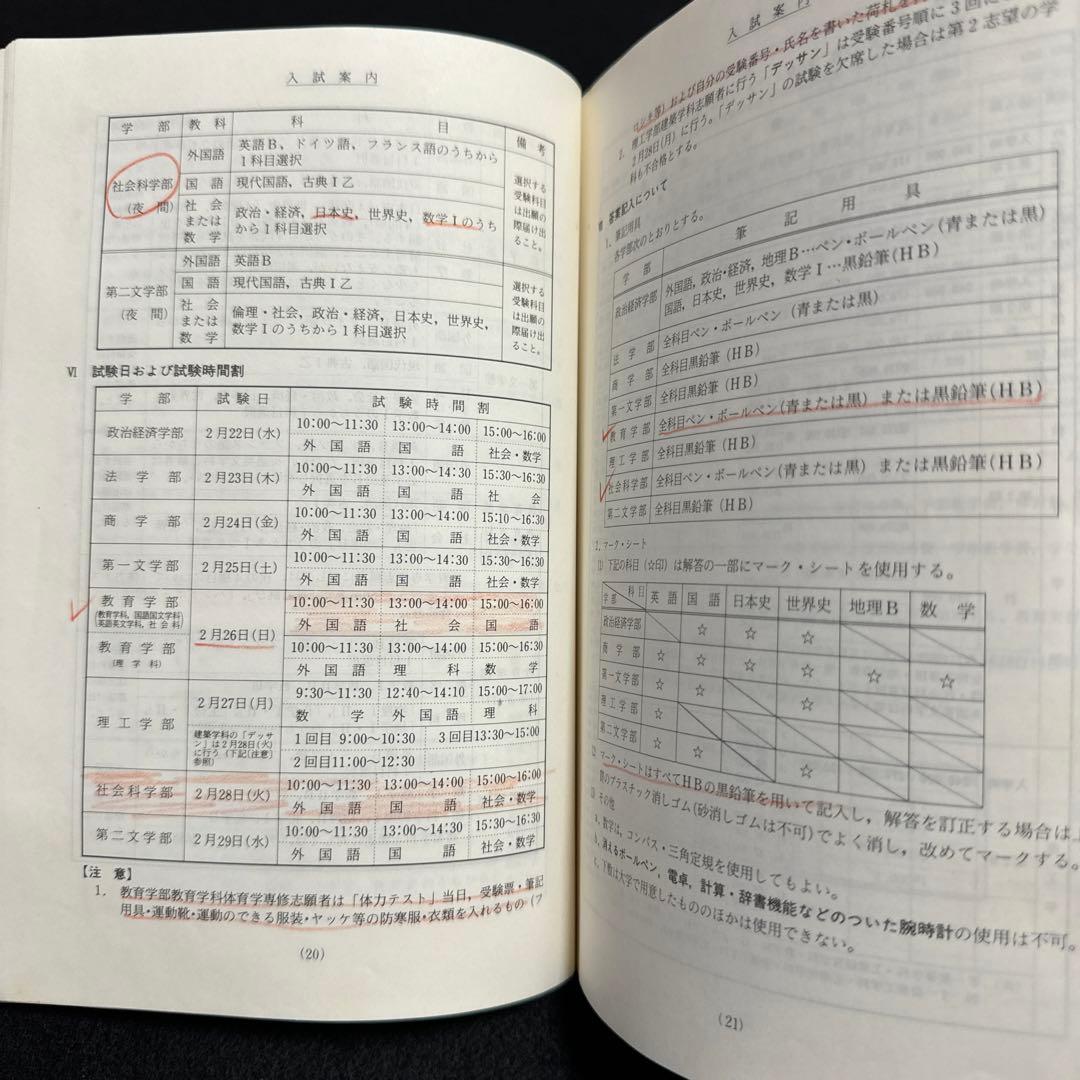 入試案内
学部 教科 科目 備考
社会科学部(夜間) 外国語 英語B、ドイツ語、フランス語のうちから1科目選択 選択する受験科目は出願の際届け出ること。
国語 現代国語，古典Ⅰ乙
社会または数学 政治・経済，日本史，世界史，数学Ⅰのうちから1科目選択
第二文学部(夜間) 外国語 英語B 選択する受験科目は出願の際届け出ること。
国語 現代国語，古典Ⅰ乙
社会または数学 倫理・社会，政治・経済，日本史，世界史，数学Ⅰのうちから1科目選択
Ⅵ 試験日および試験時間割
学部 試験日 試験時間割
政治経済学部 2月22日(水) 10:00〜11:30 13:00〜14:00 15:00〜16:00
外国語 国語 社会・数学
法学部 2月23日(木) 10:00〜11:30 13:00〜14:00 15:30〜16:30
外国語 国語 社会
商学部 2月24日(金) 10:00〜11:30 13:00〜14:00 15:10〜16:30
外国語 国語 社会・数学
第一文学部 2月25日(土) 10:00〜11:30 13:00〜14:30 15:30〜16:30
外国語 国語 社会・数学
教育学部(教育学科，国語国文学科，英語英文学科，社会科) 2月26日(日) 10:00〜11:30 13:00〜14:00 15:00〜16:00
外国語 社会 国語
教育学部(理学科) 10:00〜11:30 13:00〜14:00 15:00〜16:30
外国語 理科 数学
理工学部 2月27日(月) 9:30〜11:30 12:40〜14:10 15:00〜17:00
数学 外国語 理科
建築学科の「デッサン」は2月28日(火)に行う(下記〔注意〕参照) 1回目 9:00〜10:30 3回目13:30〜15:00
2回目11:00〜12:30
社会科学部 2月28日(火) 10:00〜11:30 13:00〜14:00 15:00〜16:00
外国語 国語 社会・数学
第二文学部 2月29日(水) 10:00〜11:30 13:00〜14:30 15:30〜16:30
外国語 国語 社会・数学
【注意】
1．教育学部教育学科体育学専修志願者は「体力テスト」当日，受験票・筆記
用具・運動靴・運動のできる服装・ヤッケ等の防寒服・衣類を入れるもの（フ
(20)
入試案内
ロシキ等）および自分の受験番号・氏名を書いた荷札を
2．理工学部建築学科志願者に行う「デッサン」は受験番号順に3回に
2月28日(月)に行う。「デッサン」の試験を欠席した場合は第2志望の学
科も不合格とする。
答案記入について
1．筆記用具
各学部次のとおりとする。
学部 筆記用具
政治経済学部 外国語，政治・経済，地理B…ペン・ボールペン(青または黒)
国語，日本史，世界史，数学Ⅰ…黒鉛筆(HB)
法学部 全科目ペン・ボールペン(青または黒)
商学部 全科目黒鉛筆(HB)
第一文学部 全科目黒鉛筆(HB)
教育学部 全科目ペン・ボールペン(青または黒)または黒鉛筆(HB)
理工学部 全科目黒鉛筆(HB)
社会科学部 全科目ペン・ボールペン(青または黒)または黒鉛筆(HB)
第二文学部 全科目黒鉛筆(HB)
2．マーク・シート
(1) 下記の科目（☆印）は解答の一部にマーク・シートを使用する。
学部 科目 英語 国語 日本史 世界史 地理B 数学
政治経済学部 ☆ ☆ ☆
商学部 ☆ ☆ ☆ ☆ ☆ ☆
第一文学部 ☆ ☆ ☆
理工学部 ☆
第二文学部 ☆ ☆ ☆
マーク・シートはすべてHBの黒鉛筆を用いて記入し，解答を訂正する場合は上
質のプラスチック消しゴム(砂消しゴムは不可)でよく消し，改めてマークする。
その他
a．数学は，コンパス・三角定規を使用してもよい。
b．消えるボールペン，電卓，計算・辞書機能などのついた腕時計の使用は不可。
c．下敷は大学で用意したもののほかは使用できない。
(21)